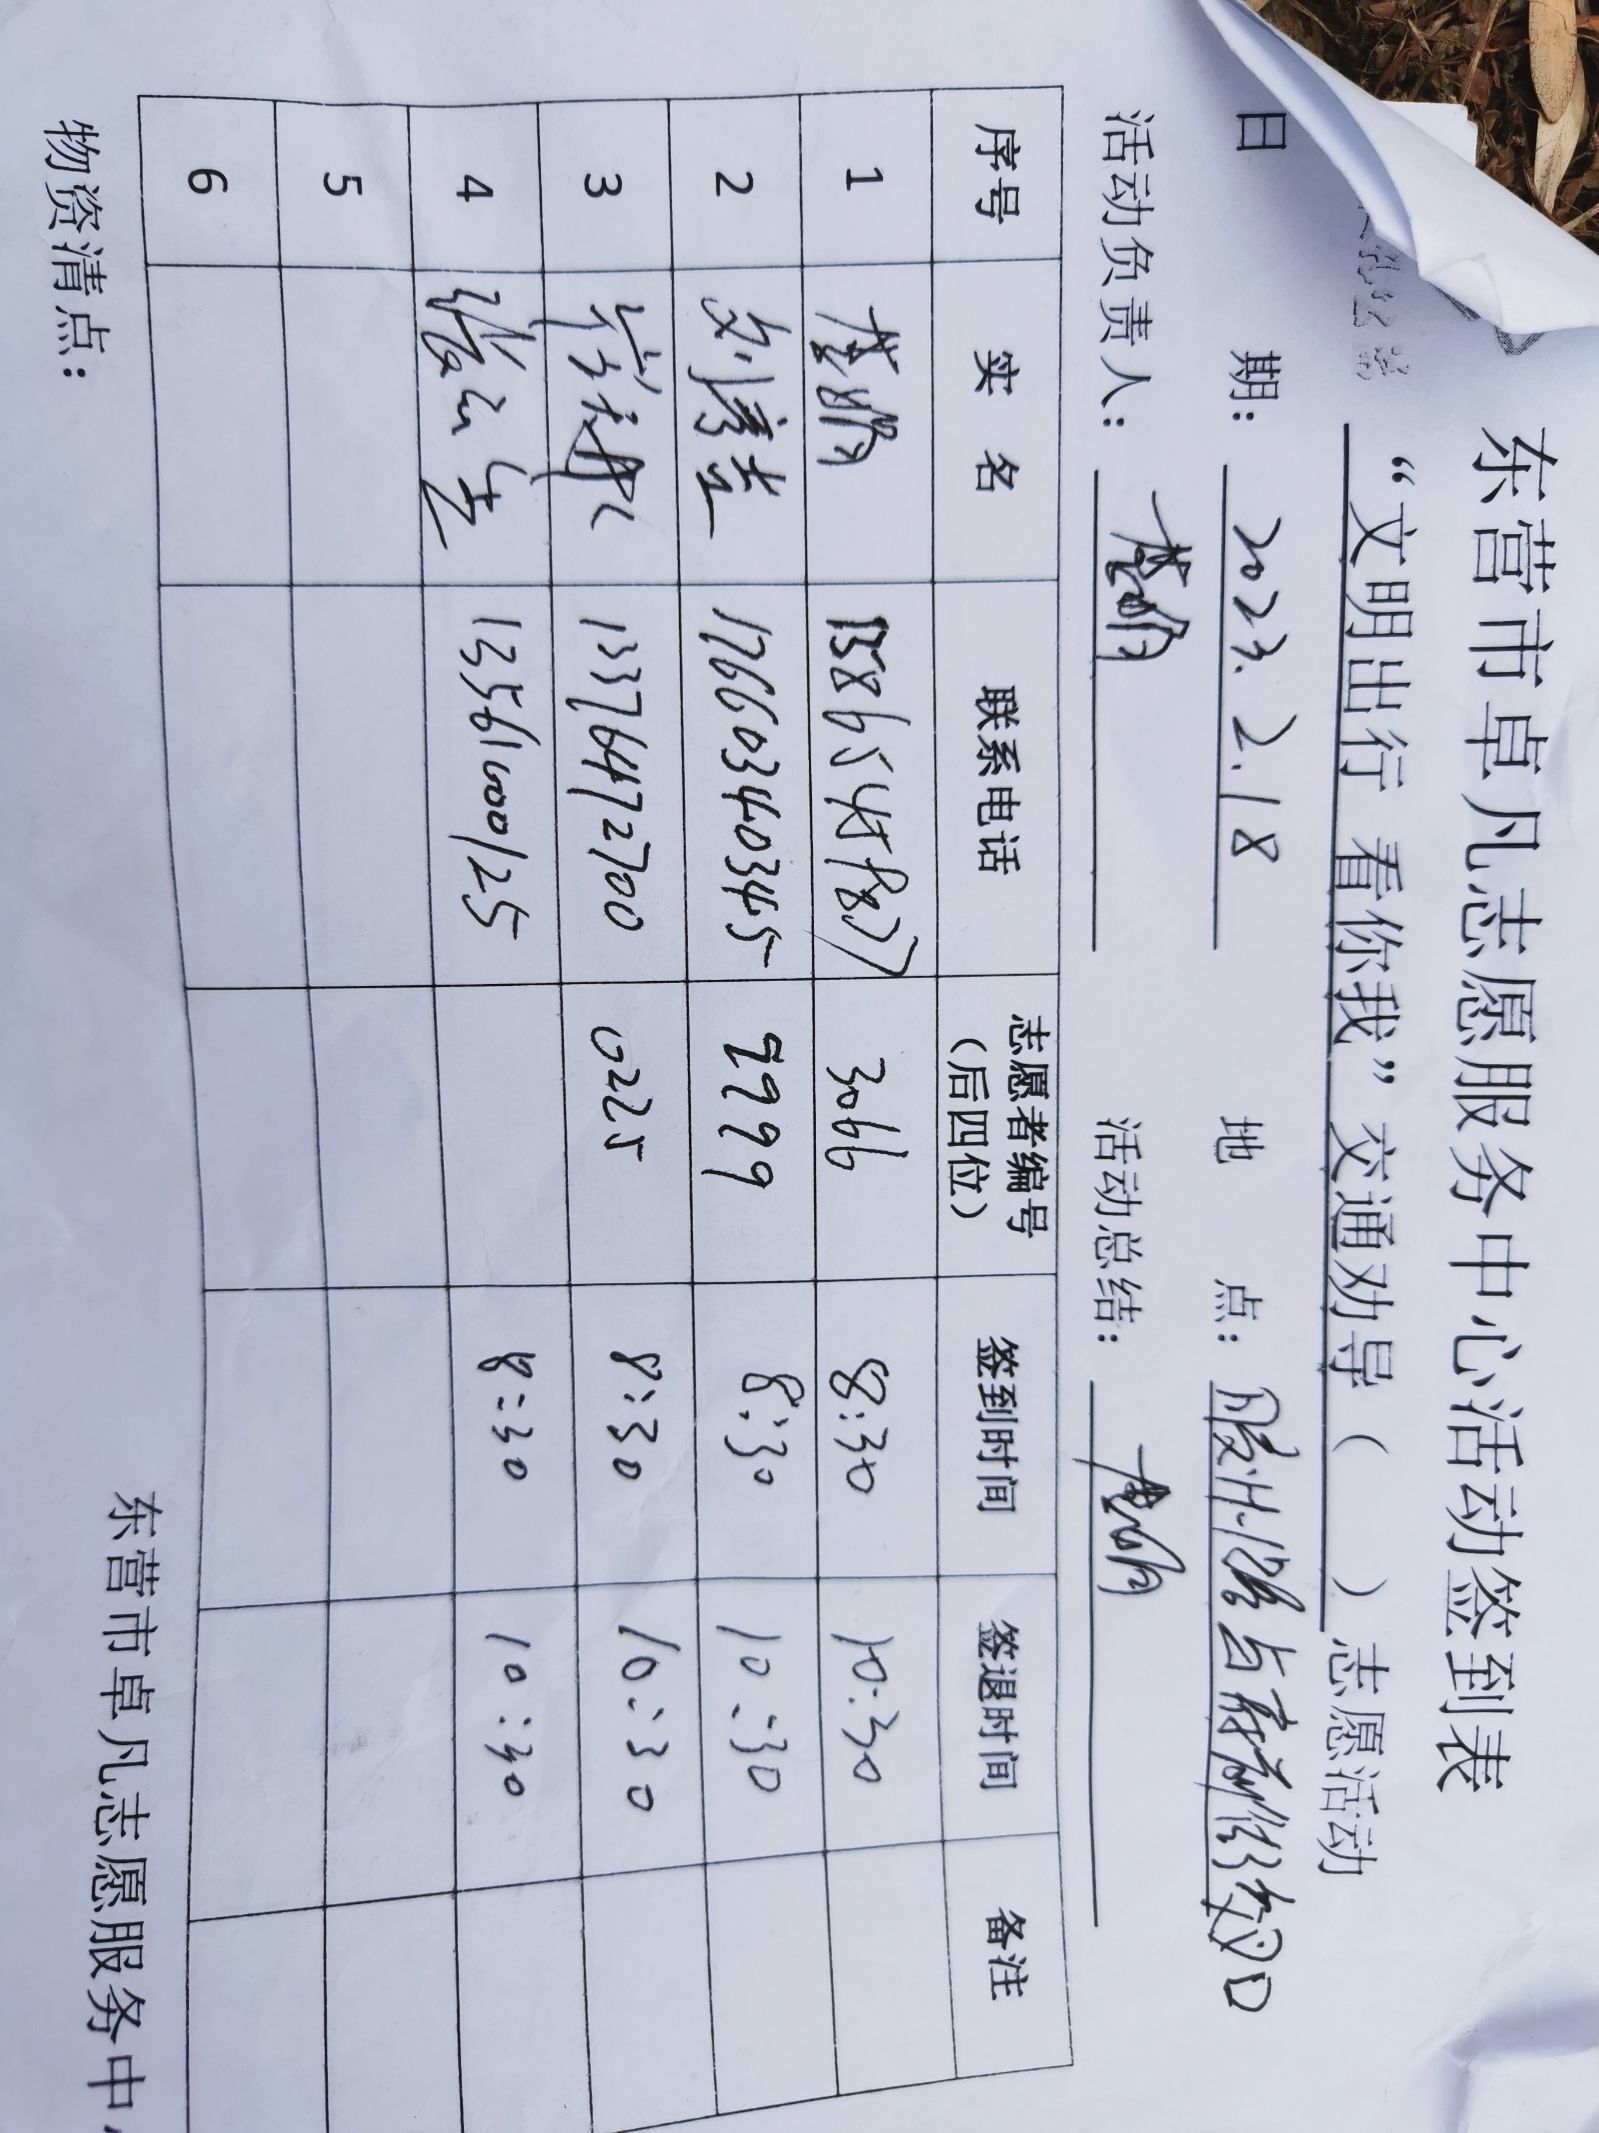 东营市卓凡志愿服务中心活动签到表
“文明出行 看你我”交通劝导（ ）志愿活动
日 期： 2023.2.18 地 点： 胶州路与府前街交叉口
活动负责人： 活动总结：
序号 实 名 联系电话 志愿者编号（后四位） 签到时间 签退时间 备注
1 3066 8:30 10:30
2 17660340345 9999 8:30 10:30
3 13376472700 0225 8:30 10:30
4 13561600125 8:30 10:30
5
6
物资清点：
东营市卓凡志愿服务中